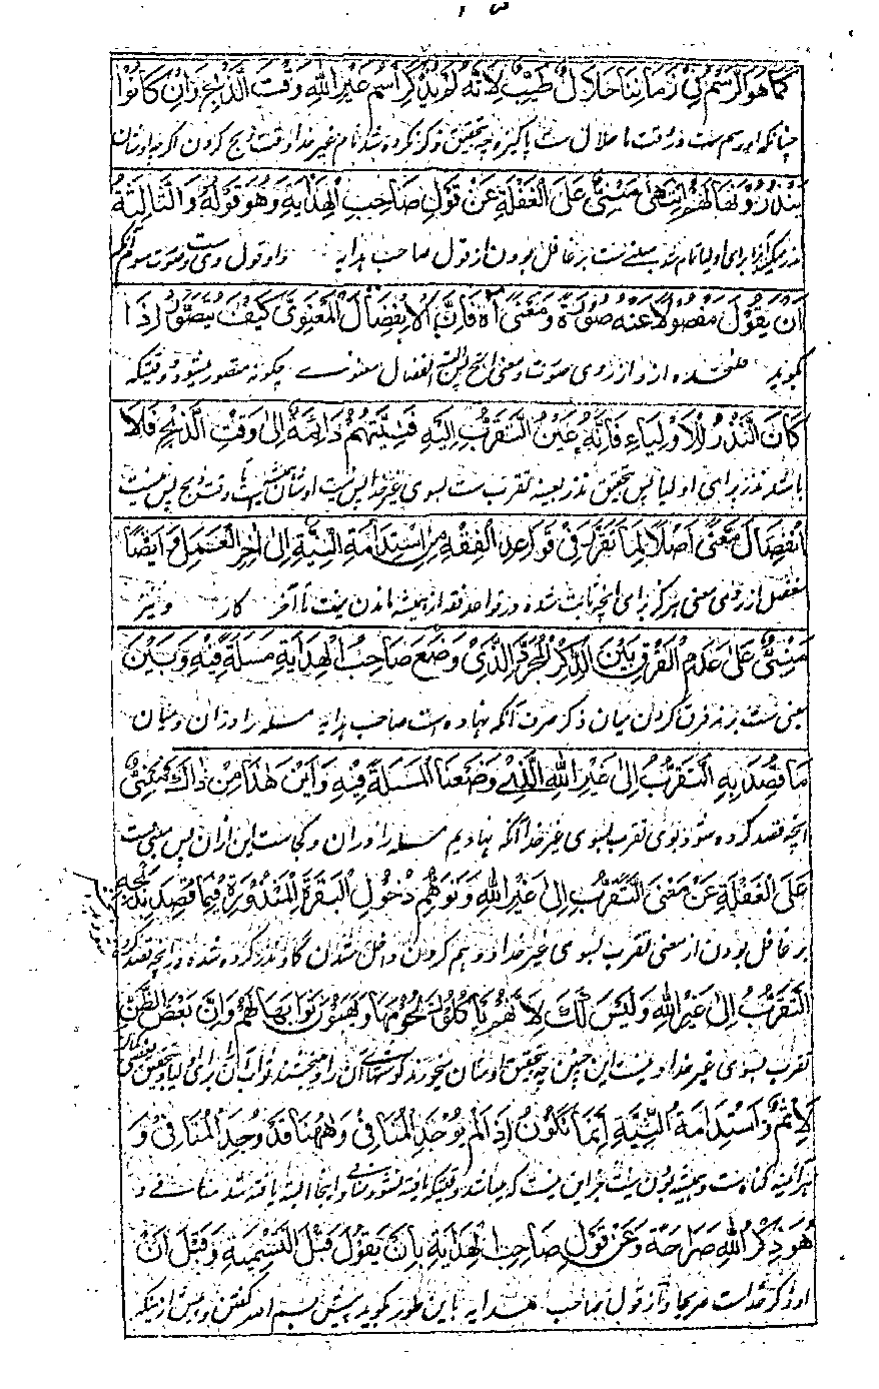 كَمَا هُوَ الرَّسْمُ فِيْ زَمَانِنَا حَلَالٌ طَيِّبٌ لِاَنَّهٗ لَمْ يُذْكَرِ اسْمُ غَيْرِ اللّٰهِ وَقْتَ الذَّبْحِ وَاِنْ كَانُوْا
چنانکه او رسم ست در وقت ما حلال ست پاکیزه چه تحقیق ذکر نکرده شد نام غیر خدا وقت ذبح کردن اگرچه اوشان
يَنْذُرُوْنَهَا لَهُمْ اِنْتَهٰى مَبْنِيٌّ عَلَى الْغَفْلَةِ عَنْ قَوْلِ صَاحِبِ الْهِدَايَةِ وَهُوَ قَوْلُهٗ وَالثَّالِثَةُ
نذر میکنند برای اولیا تمام شد مبنی ست بر غافل بودن از قول صاحب هدایه و او قول وی ست و صورت سوم آنکه
اَنْ يَقُوْلَ مَفْصُوْلًا عَنْهُ صُوْرَةً وَمَعْنًى اه فَاِنَّ الْاِنْفِصَالَ الْمَعْنَوِيَّ كَيْفَ يُتَصَوَّرُ اِذَا
گوید علیحده ازو از روی صورت و معنی الخ پس انفصال معنوی چگونه متصور میشود وقتیکه
كَانَ النَّذْرُ لِلْاَوْلِيَاءِ فَاِنَّهٗ عَيْنُ التَّقَرُّبِ اِلَيْهِ فَنِيَّتُهُمْ دَائِمَةٌ اِلٰى وَقْتِ الذَّبْحِ فَلَا
باشد نذر برای اولیا پس تحقیق نذر بعینه تقرب ست بسوی غیر خدا پس نیت اوشان همیشه است تا وقت ذبح پس نیست
اِنْفِصَالَ مَعْنًى اَصْلًا لِمَا تَقَرَّرَ فِيْ قَوَاعِدِ الْفِقْهِ مِنِ اسْتِدَامَةِ النِّيَّةِ اِلٰى اٰخِرِ الْعَمَلِ وَاَيْضًا
منفصل از روی معنی هرگز برای آنچه ثابت شده در قواعد فقه از همیشه ماندن نیت تا آخر کار و نیز
مَبْنِيٌّ عَلٰى عَدَمِ الْفَرْقِ بَيْنَ الذِّكْرِ الْمُجَرَّدِ الَّذِيْ وَضَعَ صَاحِبُ الْهِدَايَةِ مَسْئَلَةً فِيْهِ وَبَيْنَ
مبنی ست بر نه فرق کردن میان ذکر صرف آنکه نهاده است صاحب هدایه مسئله را دران و میان
مَا قُصِدَ بِهِ التَّقَرُّبُ اِلٰى غَيْرِ اللّٰهِ الَّذِيْ وَضَعْنَا الْمَسْئَلَةَ فِيْهِ وَاَيْنَ هٰذَا مِنْ ذٰاكَ فَمَبْنِيٌّ
آنچه قصد کرده شود بوی تقرب بسوی غیر خدا آنکه نهادیم مسئله را دران و کجاست این ازان پس مبنی ست
عَلَى الْغَفْلَةِ عَنْ مَعْنَى التَّقَرُّبِ اِلٰى غَيْرِ اللّٰهِ وَتَوَهُّمِ دُخُوْلِ الْبَقَرَةِ الْمَنْذُوْرَةِ فِيْمَا قُصِدَ بِذَبْحِهٖ
بر غافل بودن از معنی تقرب بسوی غیر خدا و وهم کردن داخل شدن گاو نذر کرده شده در آنچه قصد کرده
التَّقَرُّبُ اِلٰى غَيْرِ اللّٰهِ وَلَيْسَ كَذٰلِكَ لِاَنَّهُمْ يَاْكُلُوْنَ لُحُوْمَهَا وَيَهَبُوْنَ ثَوَابَهَا لَهُمْ وَاِنَّ بَعْضَ الظَّنِّ
تقرب بسوی غیر خدا و نیست این چنین چه تحقیق اوشان میخورند گوشتهای آن را و میبخشند ثواب آن برای اولیا و تحقیق بعض گمان
لَاِثْمٌ وَاسْتِدَامَةُ النِّيَّةِ اِنَّمَا تَكُوْنُ اِذَا لَمْ يُوْجَدِ الْمُنَافِيْ وَهٰهُنَا قَدْ وُجِدَ الْمُنَافِيْ وَ
هر آئینه گناه ست و همیشه بودن نیت جز این نیست که میباشد وقتیکه یافته نشود منافی و اینجا البته یافته شد منافی و
هُوَ ذِكْرُ اللّٰهِ صَرَاحَةً وَعَنْ قَوْلِ صَاحِبِ الْهِدَايَةِ بِاَنْ يَقُوْلَ قَبْلَ التَّسْمِيَةِ وَقَبْلَ اَنْ
او ذکر خداست صریحا و از قول صاحب هدایه باین طور گوید پیش بسم الله گفتن و پیش ازینکه